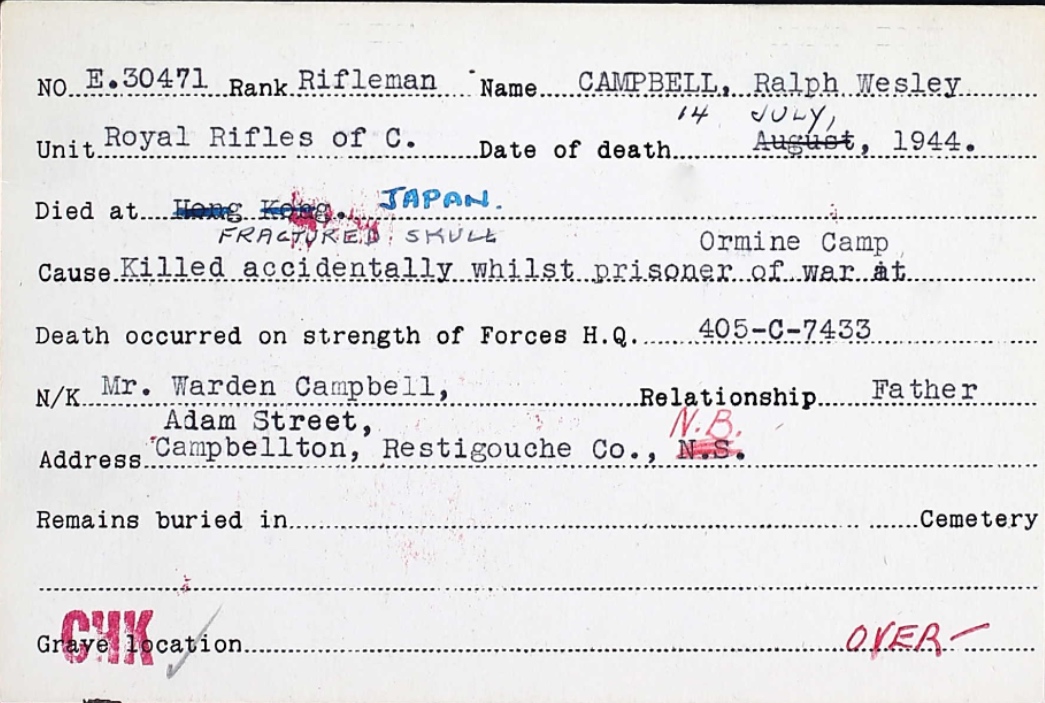 NO. E.30471 Rank Rifleman Name CAMPBELL, Ralph Wesley
14 JULY,
Unit Royal Rifles of C. Date of death August, 1944.
Died at Hong Kong. JAPAN.
FRACTURED SKULL Ormine Camp
Cause Killed accidentally whilst prisoner of war at
Death occurred on strength of Forces H.Q. 405-C-7433
N/K Mr. Warden Campbell, Relationship Father
Adam Street, N.B.
Address Campbellton, Restigouche Co., N.S.
Remains buried in Cemetery
CHK
Grave location OVER-